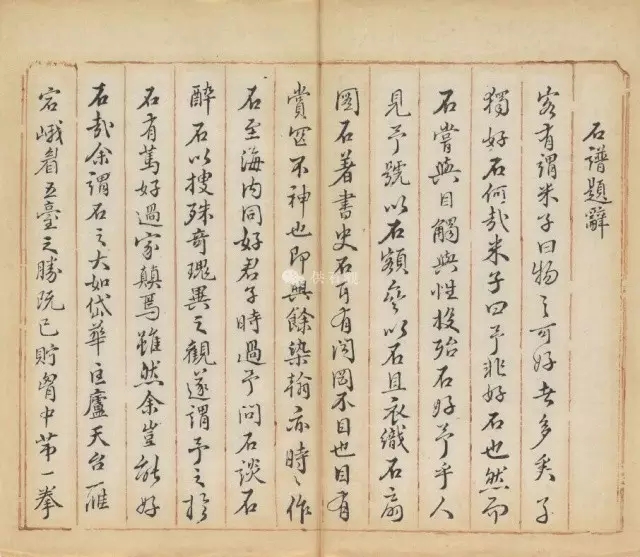 石譜題辭
客有謂米子曰物之可好者多矣子
獨好石何哉米子曰予非好石也然而
石嘗與目觸與性投殆石好予乎人
見予號以石額齋以石且衣織石扇
圖石著書史石耳有聞罔不目也目有
賞罔不神也即興餘染翰亦時〻作
石至海内同好君子時過予問石談石
醉石以搜殊奇瑰異之觀遂謂予之於
石有篤好過家顛焉雖然余豈能好
石哉余謂石之大如岱華匡廬天台雁
宕峨眉五臺之勝既已貯胷中第一拳